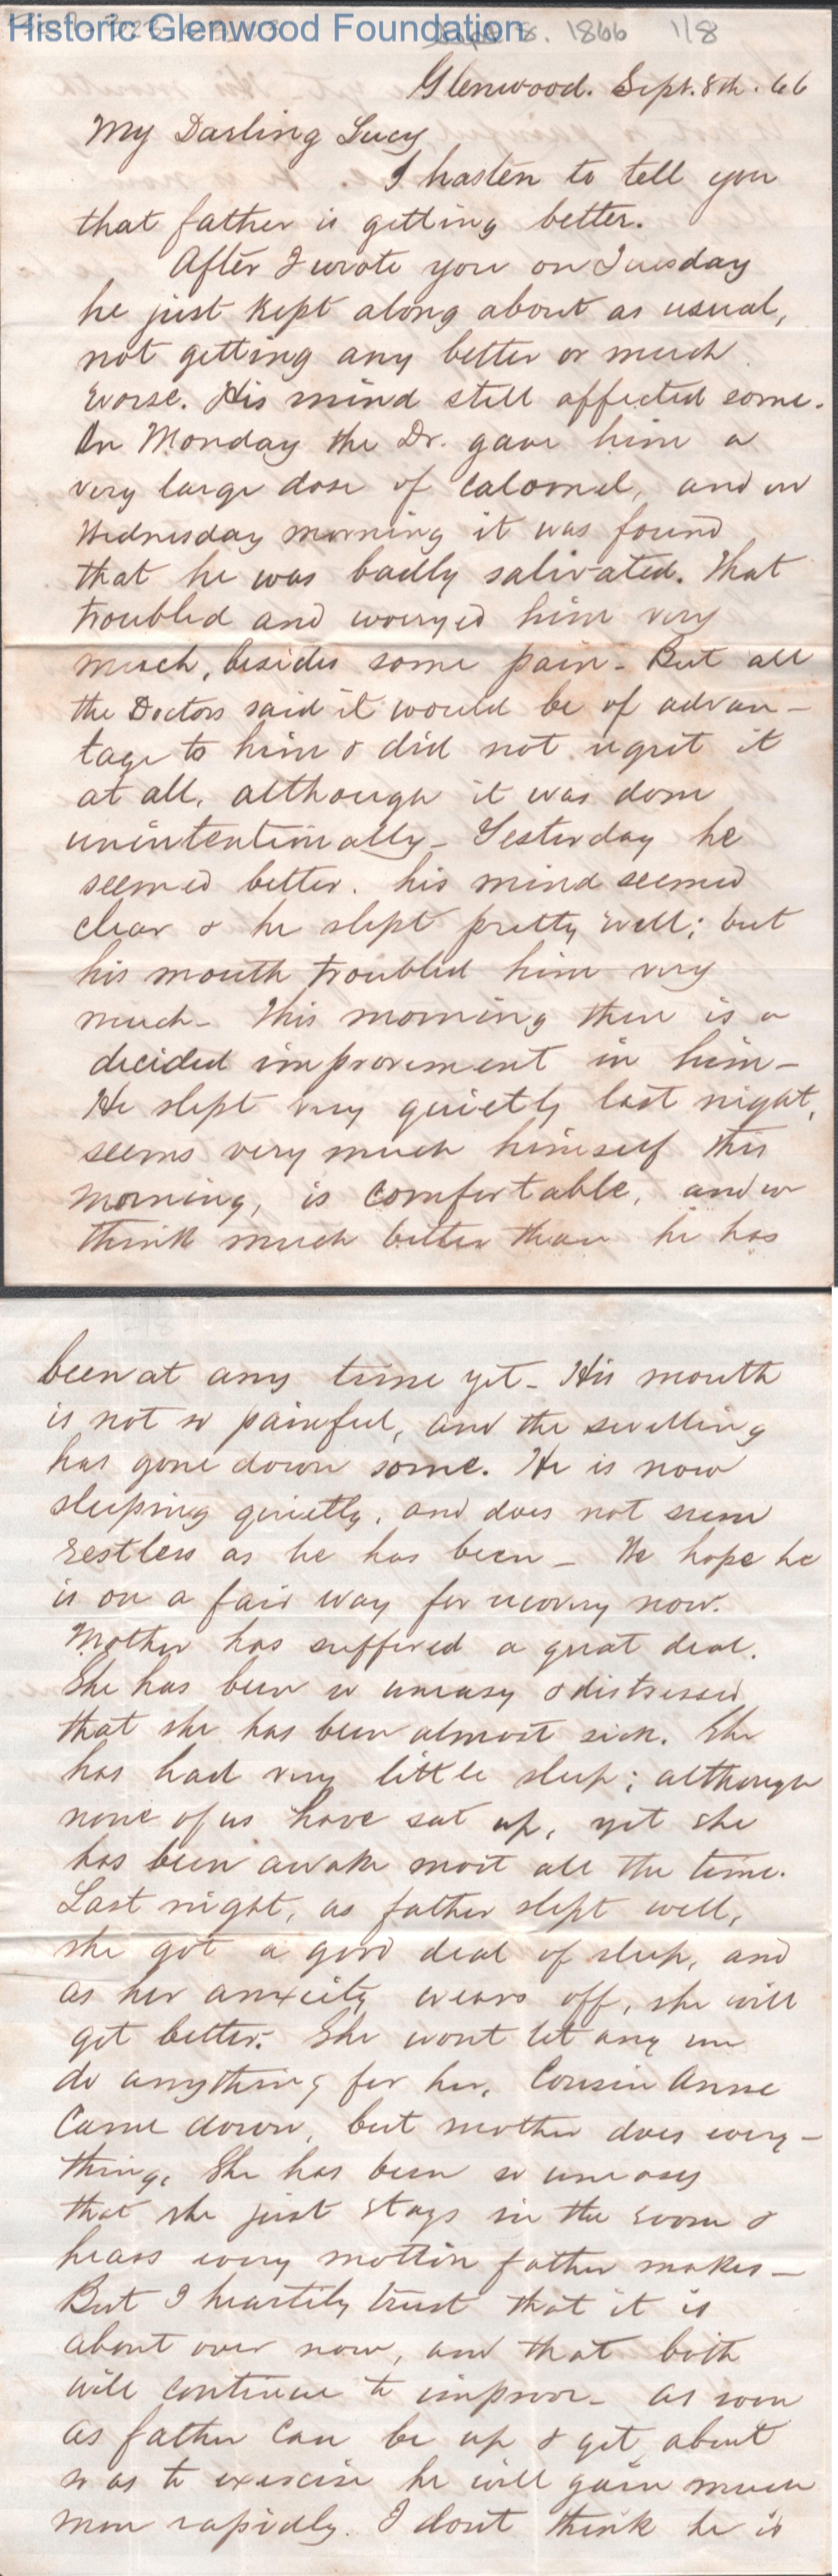 Historic Glenwood Foundation
8. 1866 1/8
Glenwood. Sept. 8th. 66
My Darling Lucy
I hasten to tell you
that father is getting better.
After I wrote you on Tuesday
he just kept along about as usual,
not getting any better or much
worse. His mind still affected some.
On Monday the Dr. gave him a
very large dose of Calomel, and on
Wednesday morning it was found
that he was badly salivated. That
troubled and worryed him very
much, besides some pain - But all
the Doctors said it would be of advan-
tage to him & did not regret it
at all, although it was done
unintentionally - Yesterday he
seemed better. his mind seemed
clear & he slept pretty well; but
his mouth troubled him very
much - This morning there is a
decided improvement in him -
He slept very quietly last night,
seems very much himself this
morning, is comfortable, and we
think much better than he has
been at any time yet - His mouth
is not so painful, and the swelling
has gone down some. He is now
sleeping quietly, and does not seem
restless as he has been - We hope he
is on a fair way for recovery now.
Mother has suffered a great deal.
She has been so uneasy & distressed
that she has been almost sick. She
has had very little sleep; although
none of us have sat up, yet she
has been awake most all the time.
Last night, as father slept well,
she got a good deal of sleep, and
as her anxiety wears off, she will
get better. She wont let any one
do anything for her. Cousin Anne
came down, but mother does every-
thing. She has been so uneasy
that she just stays in the room &
hears every motion father makes -
But I heartily trust that it is
about over now, and that both
will continue to improve - As soon
as father can be up & get about
so as to exercise he will gain much
more rapidly. I dont think he is